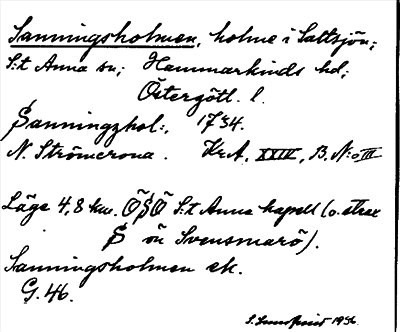 Sanningsholmen, holme i Saltsjön;
S:t Anna sn; Hammarkinds hd;
Östergötl. l.
Sanningzhol:, 1734.
N. Strömcrona. Kr.A. XXIV, B. N:o III
Läge 4,8 km. ÖSÖ S:t Anna kapell (o. strax
S ön Svensmarö).
Sanningsholmen ek.
G. 46.
1956